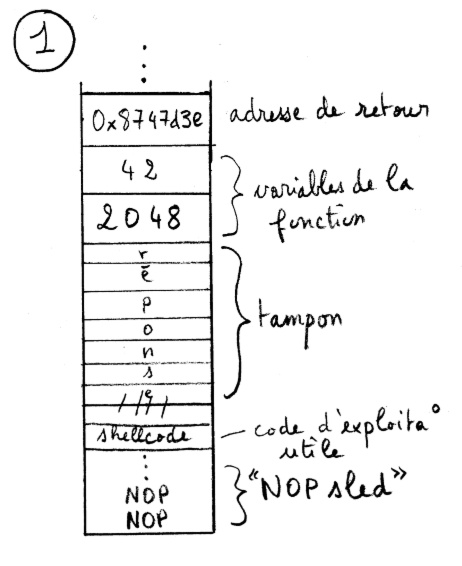 1
0x8747d3e
adresse de retour
42
variables de la
fonction
2048
r
é
p
o
n
s
e
tampon
shellcode
code d'exploita°
utile
NOP
NOP
"NOP sled"